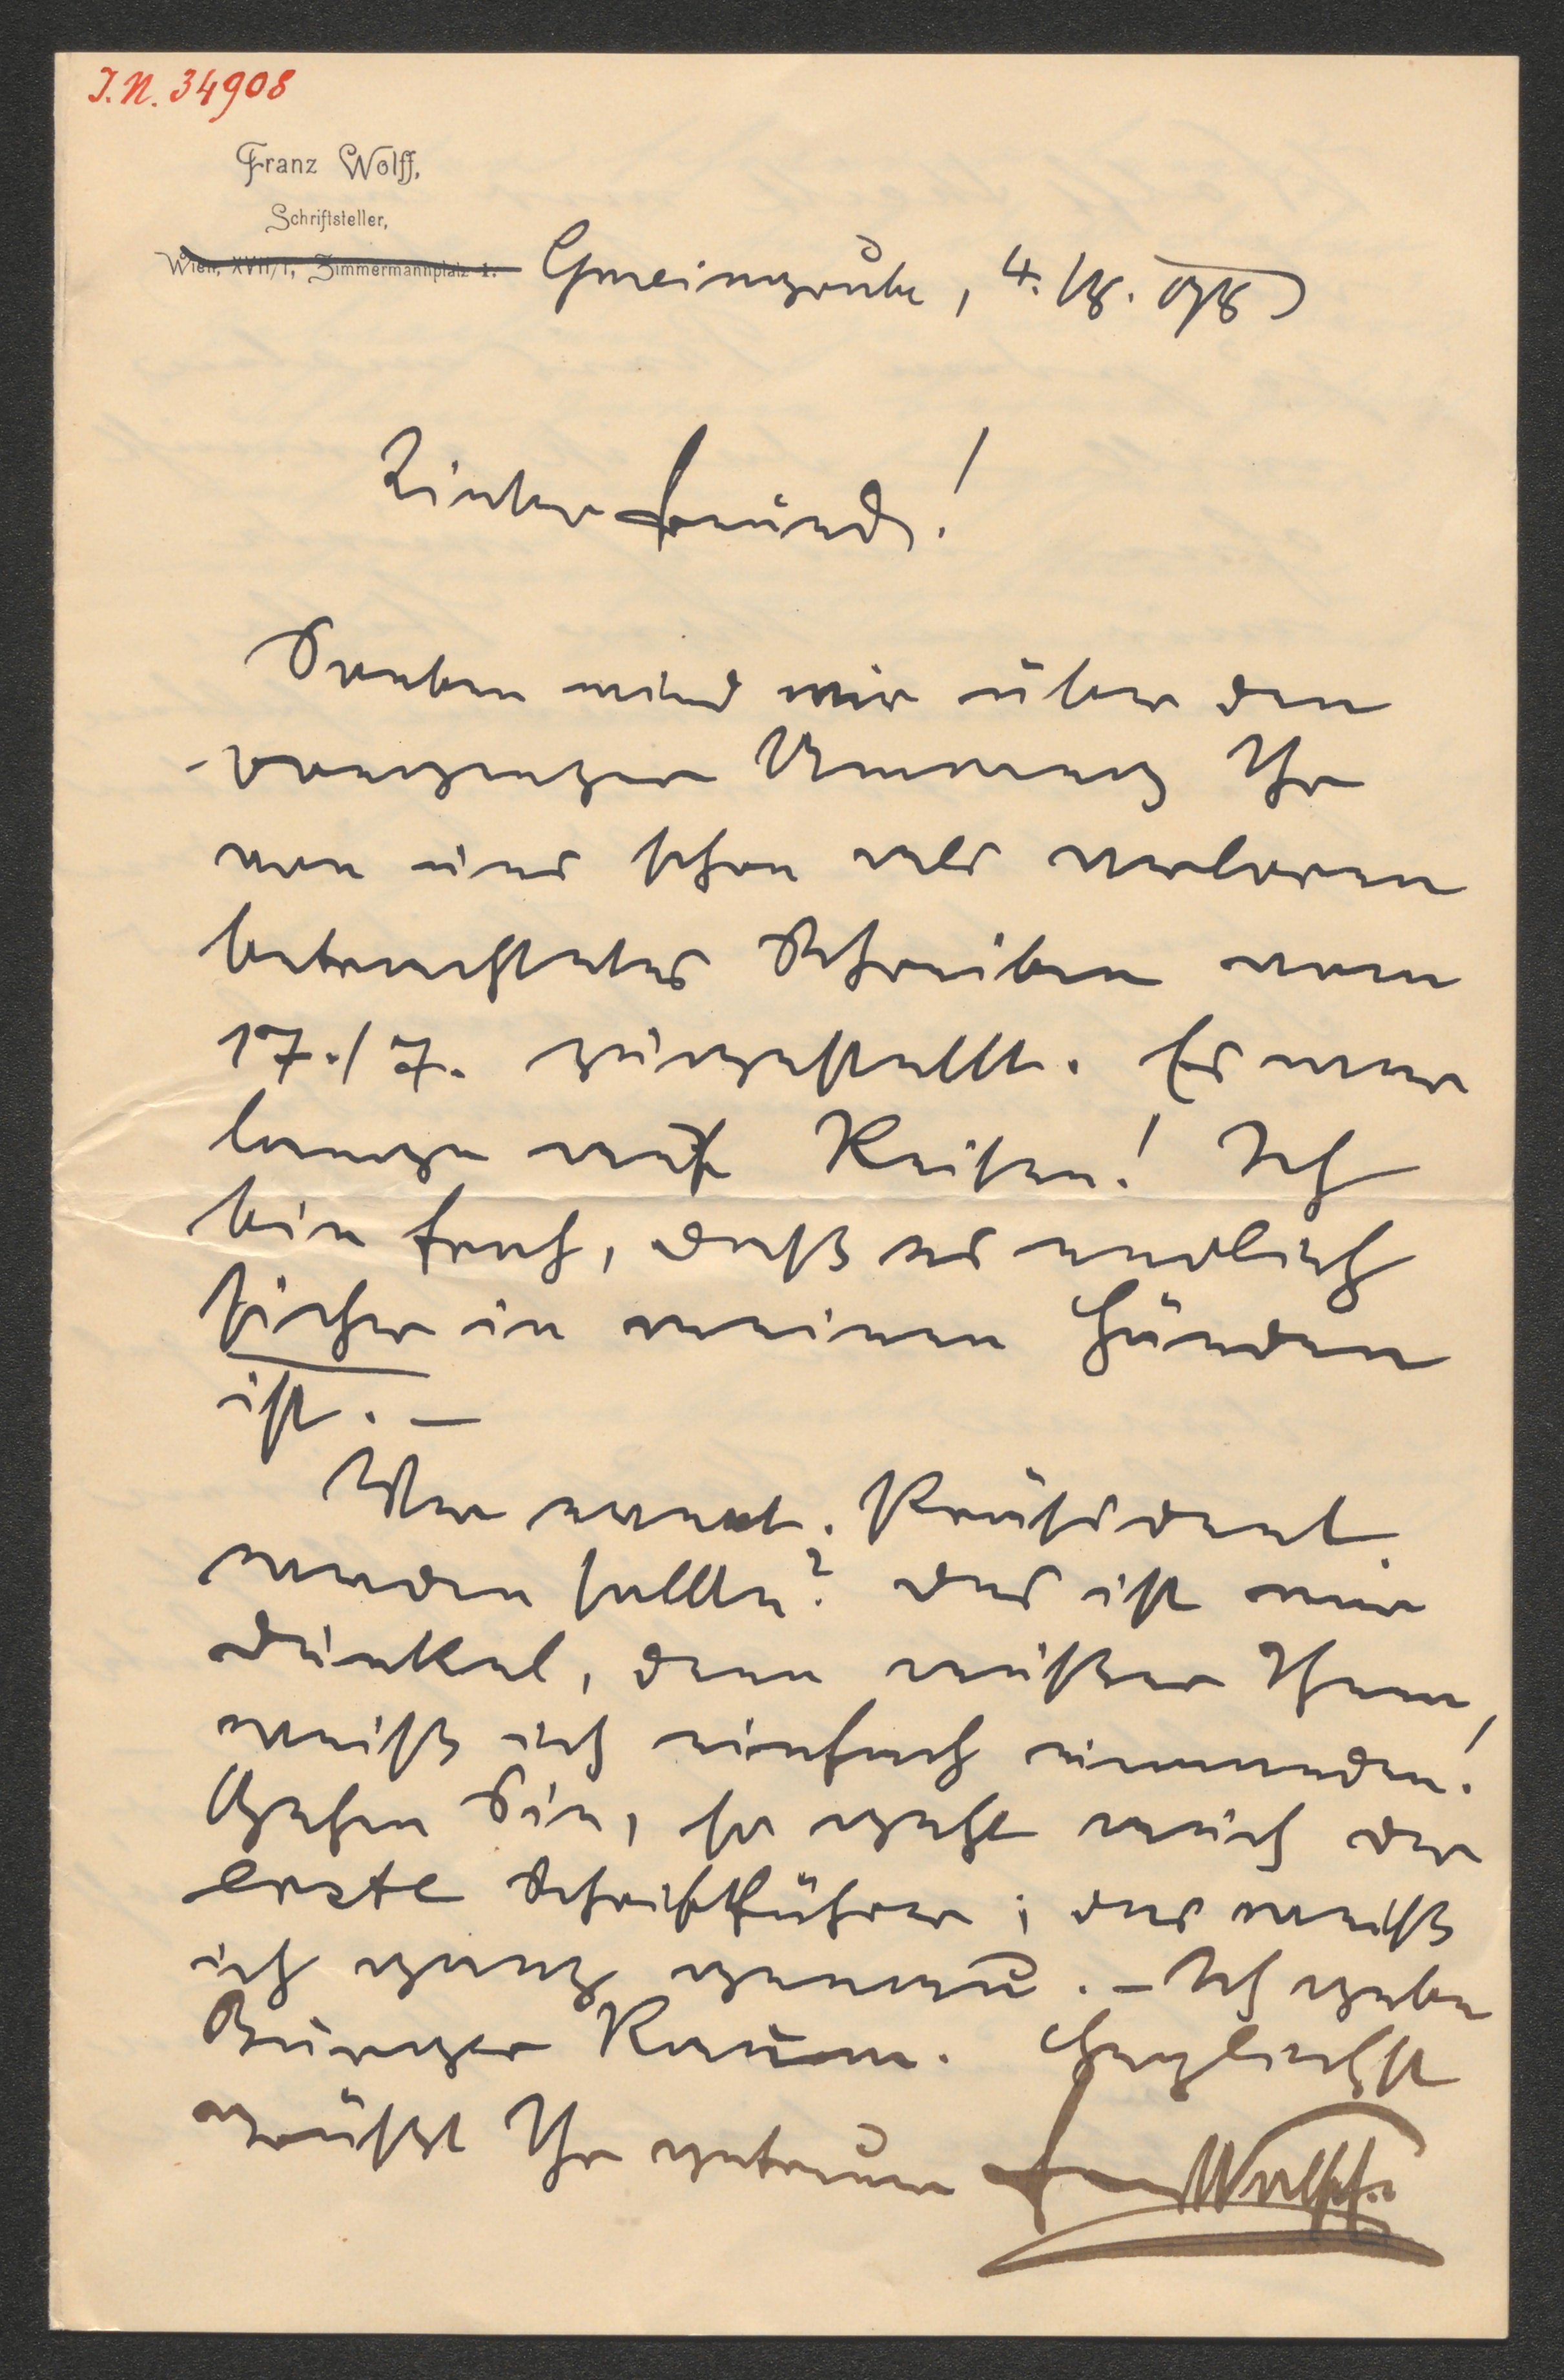 I. N. 34908
Franz Wolff,
Schriftsteller,
Wien, XVII/1, Zimmermannplatz 1.
Gmeingrube, 4./8. 98
Lieber Freund!
Soeben wird mir über den
vorgengen Umweg Ihr
von uns schon als verloren
betrachtetes Schreiben vom
17./7. zugestellt. Es war
lange auf Reisen! Ich
bin froh, daß es endlich
sicher in meinen Händen
ist. –
Wer event. Präsident
werden sollte? das ist mir
dunkel, denn außer Ihnen,
weiß ich einfach niemanden!
Gehen Sie, so geht auch der
erste Schriftführer; das weiß
ich ganz genau. – Ich gebe
Burger Raum. Herzlichst
grüßt Ihr getreuer Franz Wolff.